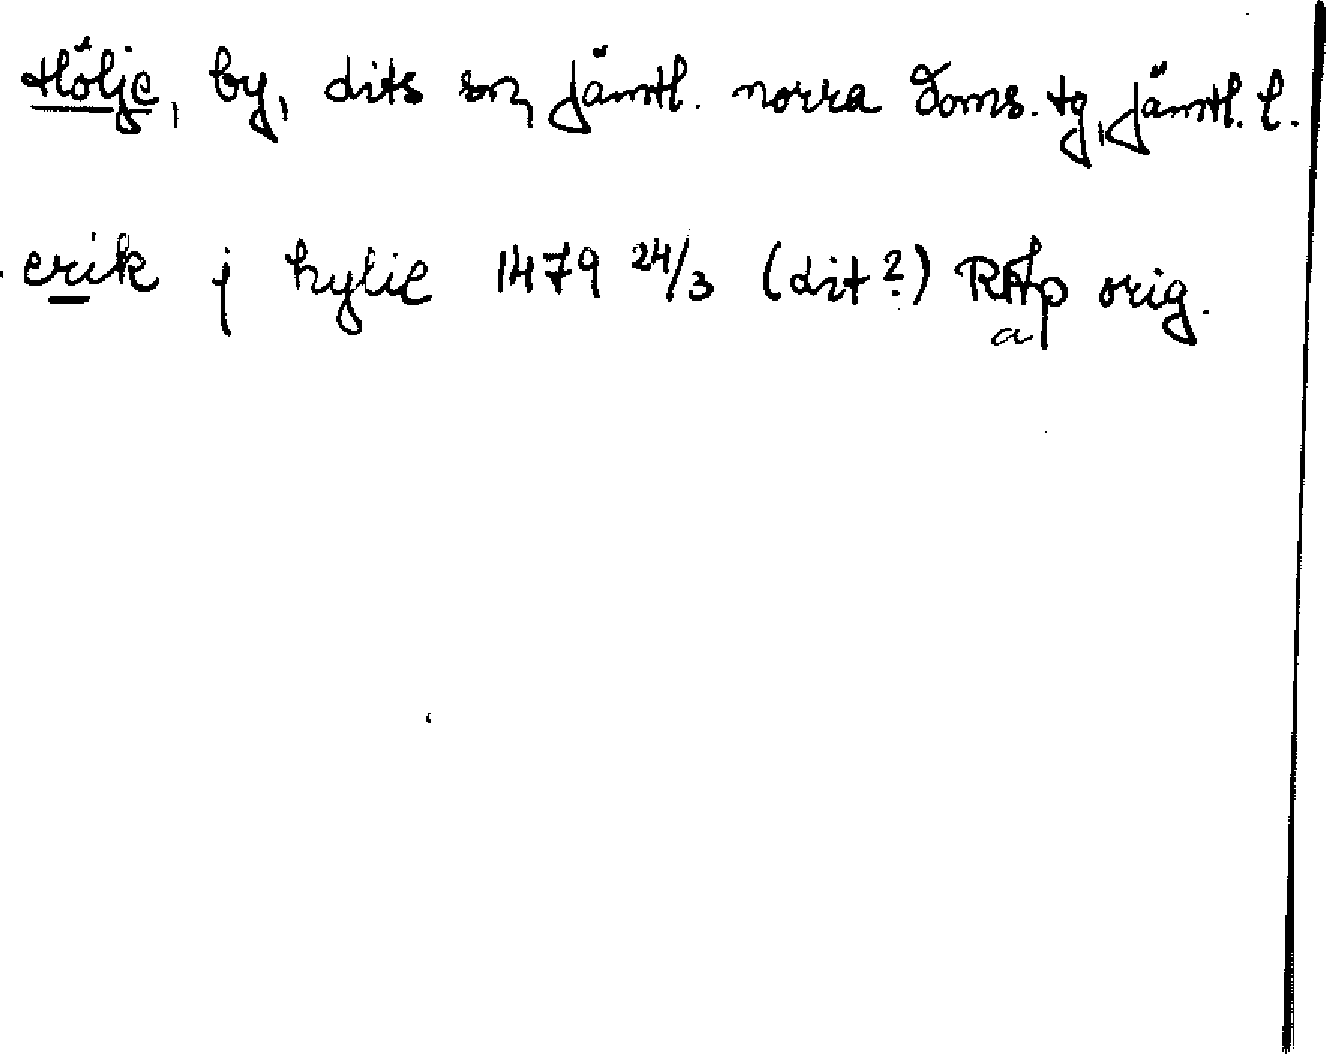 Hölje, by, Lits sn, Jämtl. norra doms. tg, Jämtl. l.
erik j hylie 1479 24/3 (Lit?) RAp orig.
a